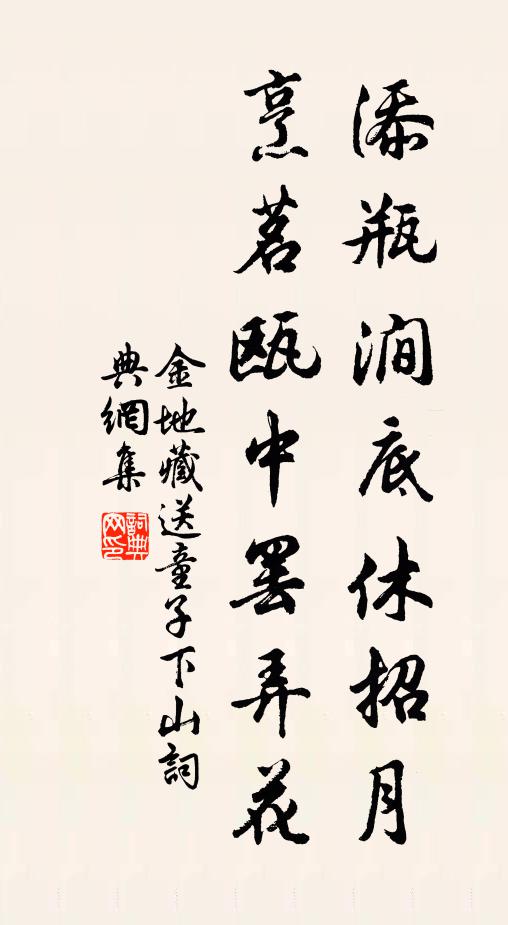 添瓶澗底休招月
烹茗甌中罷弄花
金地藏送童子下山詞
典網集
詞典
網印